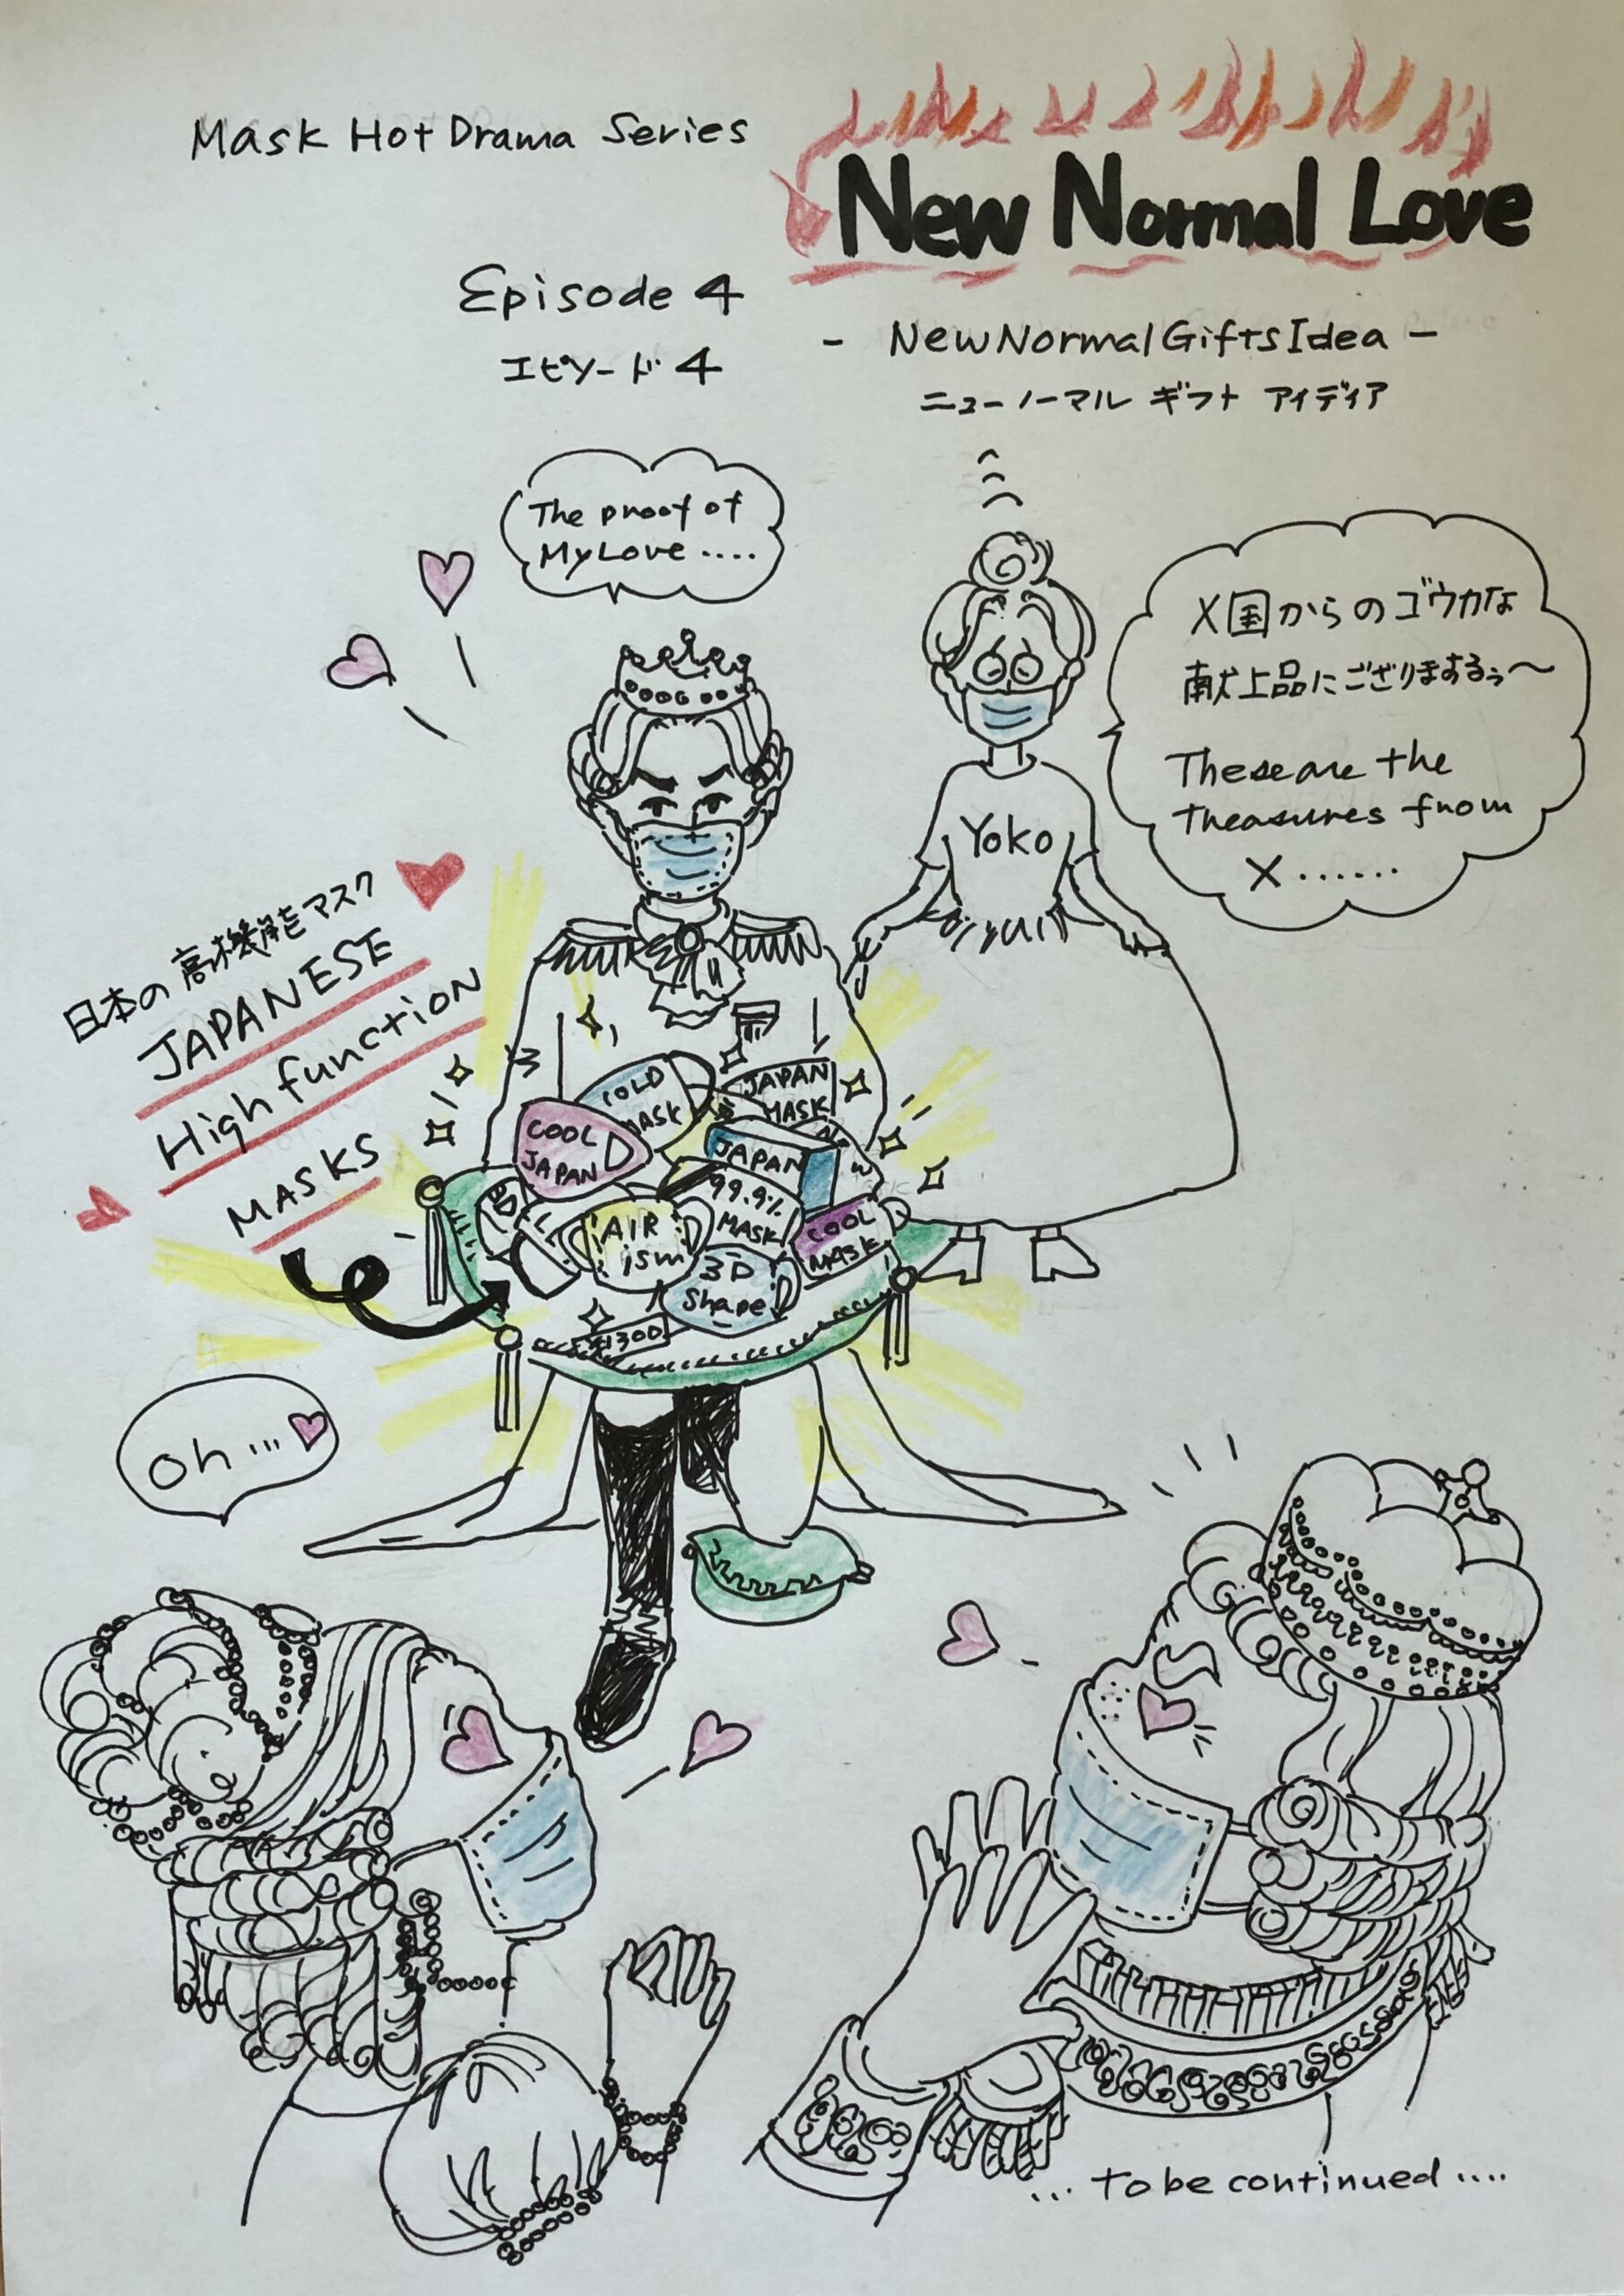 Mask Hot Drama Series
New Normal Love
Episode 4
エピソード 4
- New Normal Gifts Idea -
ニューノーマル ギフト アイディア
The proof of
My Love ....
X国からのゴウカな
献上品にござりまするぅ〜
These are the
treasures from
X ......
Yoko
日本の高機能マスク
JAPANESE
High function
MASKS
COLD
MASK
JAPAN
MASK
COOL
JAPAN
JAPAN
AIR
99.9%
MASK
AIR
ism
COOL
MASK
3D
Shape
¥1300
Oh ...
... To be continued ....